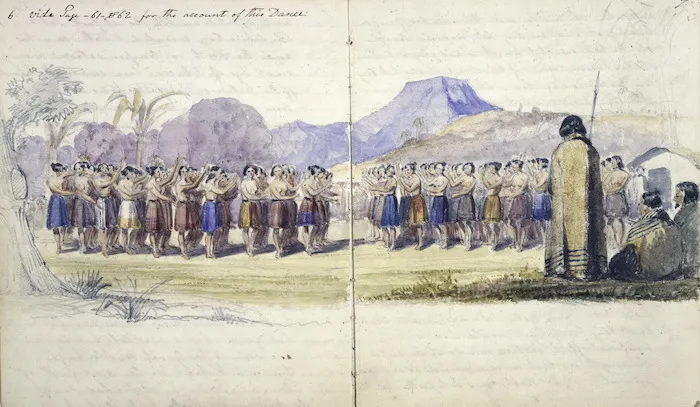 6 vide Page -61- & 62 for the account of this Dance